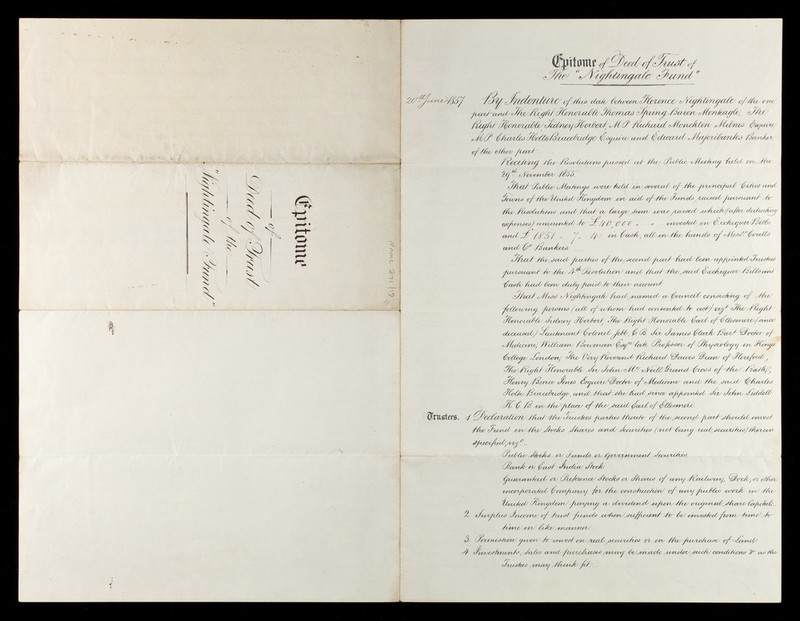 Epitome
of
Deed of Trust
of the
"Nightingale Fund"
Epitome of Deed of Trust of
The "Nightingale Fund"
20th June 1857 By Indenture of this date between Florence Nightingale of the one
part and The Right Honorable Thomas Spring Baron Monteagle, The
Right Honorable Sidney Herbert, M.P. Richard Monckton Milnes Esquire
M.P. Charles Holte Bracebridge Esquire and Edward Majoribanks Banker
of the other part
Reciting the Resolutions passed at the Public Meeting held on the
29th November 1855
That Public Meetings were held in several of the principal Cities and
Towns of the United Kingdom in aid of the Funds raised pursuant to
the Resolutions and that a large sum was raised which (after deducting
expenses) amounted to £40,000 . . invested in Exchequer Bills
and £1851 . 7 . 4 in Cash, all in the hands of Messrs Coutts
and Co Bankers
That the said parties of the second part had been appointed Trustees
pursuant to the 4th Resolution and that the said Exchequer Bills and
Cash had been duly paid to their account
That Miss Nightingale had named a Council consisting of the
following persons (all of whom had consented to act) vizt The Right
Honorable Sidney Herbert, The Right Honorable Earl of Ellesmere (since
deceased) Lieutenant Colonel Jebb C.B. Sir James Clark Bart Doctor of
Medicine, William Bowman Esqre late Professor of Physiology in Kings
College London, The Very Reverend Richard Dawes Dean of Hereford,
The Right Honorable Sir John McNeill Grand Cross of the Bath,
Henry Bence Jones Esquire Doctor of Medicine and the said Charles
Holte Bracebridge and that she had since appointed Sir John Liddell
K.C.B. in the place of the said Earl of Ellesmere
Trustees. 1 Declaration that the Trustees parties thereto of the second part should invest
the Fund on the Stocks Shares and Securities (not being real securities) therein
specified, vizt
Public Stocks or Funds or Government Securities
Bank or East India Stock
Guaranteed or Preference Stocks or Shares of any Railway, Dock, or other
incorporated Company for the construction of any public work in the
United Kingdom paying a dividend upon the original share Capitals.
2. Surplus Income of trust funds when sufficient to be invested from time to
time in like manner
3. Permission given to invest on real securities or in the purchase of Land
4 Investments, Sales and purchases may be made under such conditions &c as the
Trustees may think fit.